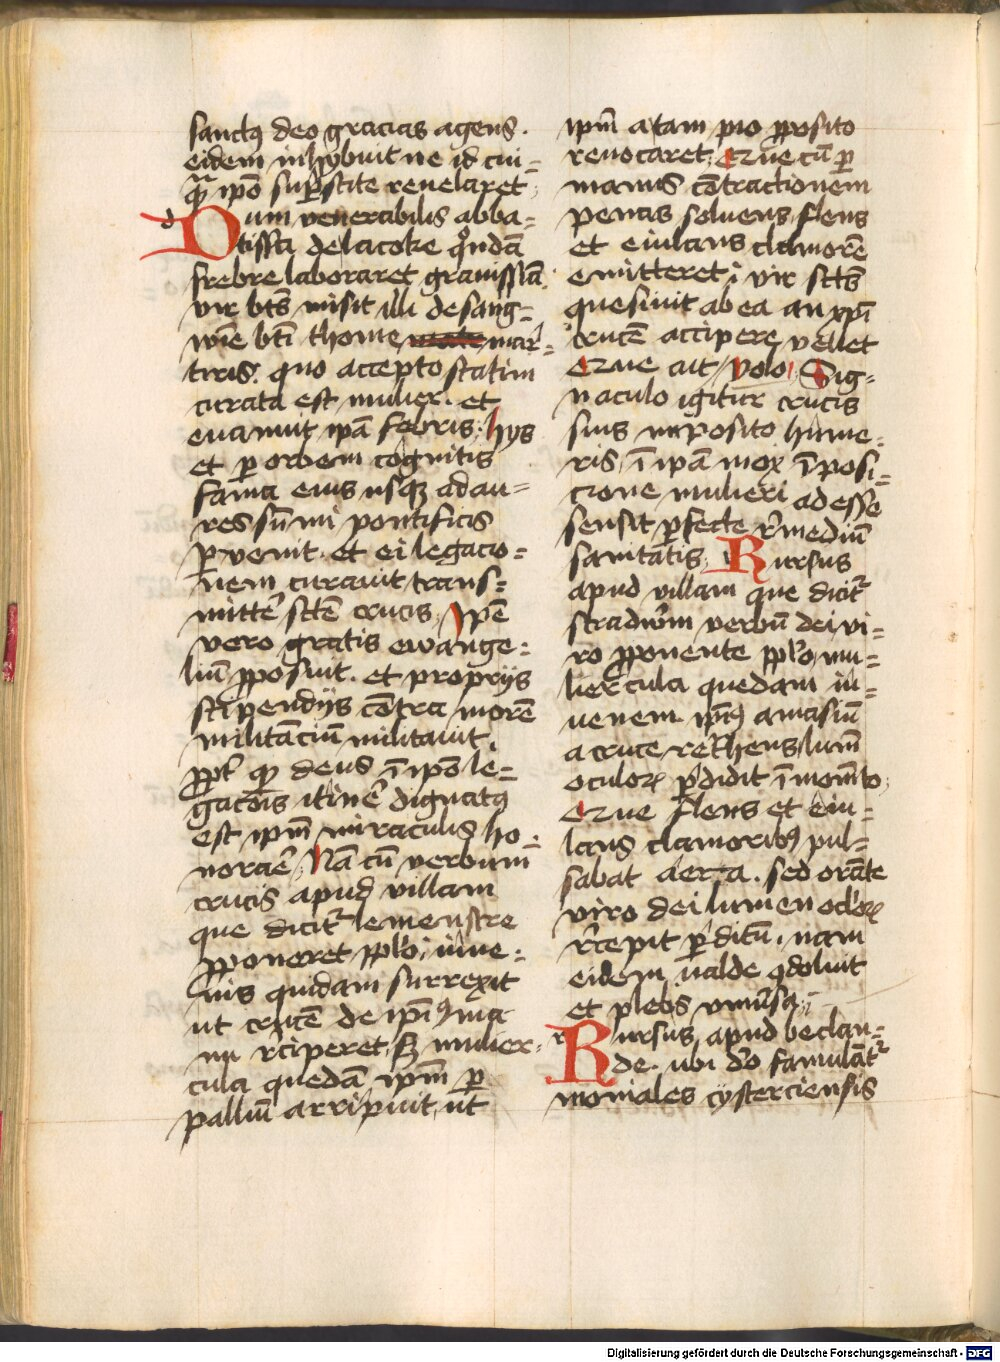 sanctꝯ deo gracias agens.
eidem inhybuit ne id cui=
qᷓ ip̄o sup̄stite reuelaret
Dum venerabilis abba=
tissa delacoke qͦndā
frebre laboraret grauissīā
vir bt̄s misit illi de sang=
wīe bt̄i thome mar=
tiris. quo accepto statim
curata est mulier. et
euanuit ip̄a febris. hys
et ꝑ orbem cognitis
fama eius usqꝫ ad au=
res sūmi pontificis
ꝑvenit. et ei legacio=
nem curauit trans=
mitte᷑ sc̄tē crucis. Ip̄e
vero gratis ewange=
liū ꝓposuit. et proprijs
stipendijs cōtra morē
militanciū militauit.
ꝓpt᷑ qꝫ deus ī ip̄o le=
gacōis itine᷑ dignatꝯ
est ip̄m miraculis ho
norare᷑ Nā cū verbum
crucis apud villam
que dicit᷑ lemenstre
ꝓponeret pp̄lo, iuue=
nis quidam surrexit
ut crucē de ip̄iꝯ ma
nu r̄ciperet. sꝫ mulier=
cula quedā ip̄m ꝑ
palliū arripuit ut
ip̄m a tam pio ꝓposito
reuocaret. Que cū ꝑ
manus cōtractionem
penas soluens flens
et eiulans clamorē
emitteret, vir sc̄tꝰ
quesiuit ab ea an xp̄i
crucē accipere vellet
Que ait volo. Sig=
naculo igitur crucis
suis imposito hume=
ris, ī ip̄a mox īposi=
cione mulieri adesse
sensit ꝑfecte r̄mediū
sanitatis. Rursus
apud villam que dicit᷑
verbū dei vi=
ro ꝓponente pp̄lo, mu=
liercula quedam iu=
uenem ip̄iꝯ amasiū
a cruce retħens lum̄
oculoꝝ ꝑdidit ī mom̄to
Que flens et eiu=
lans clamoribꝯ pul=
sabat aera. sed orāte
viro dei lumen oclōꝝ
r̄cepit ꝑditū. nam
eidem valde ꝯdoluit
et plebs vniūsa.
Rursus apud beclau=
de. ubi dō famulāt᷑
moniales cysterciensis
Digitalisierung gefördert durch die Deutsche Forschungsgemeinschaft - DFG